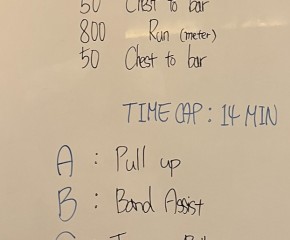 50 Chest to bar
800 Run (meter)
50 Chest to bar
TIME CAP : 14 MIN
A : Pull up
B : Band Assist